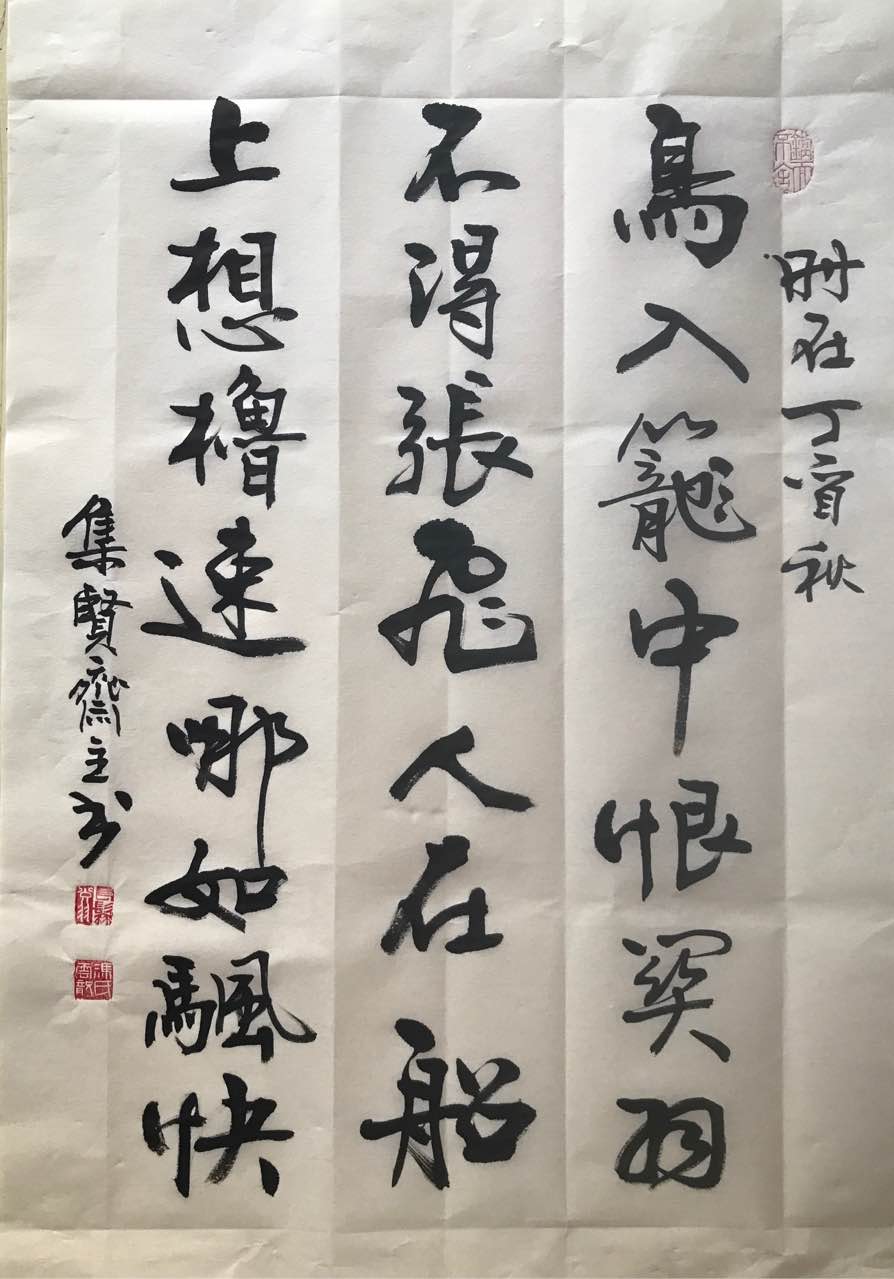 时在丁酉秋
鳥入籠中恨関羽
不得張飛人在船
上想櫓速哪如颿快
集賢齋主书